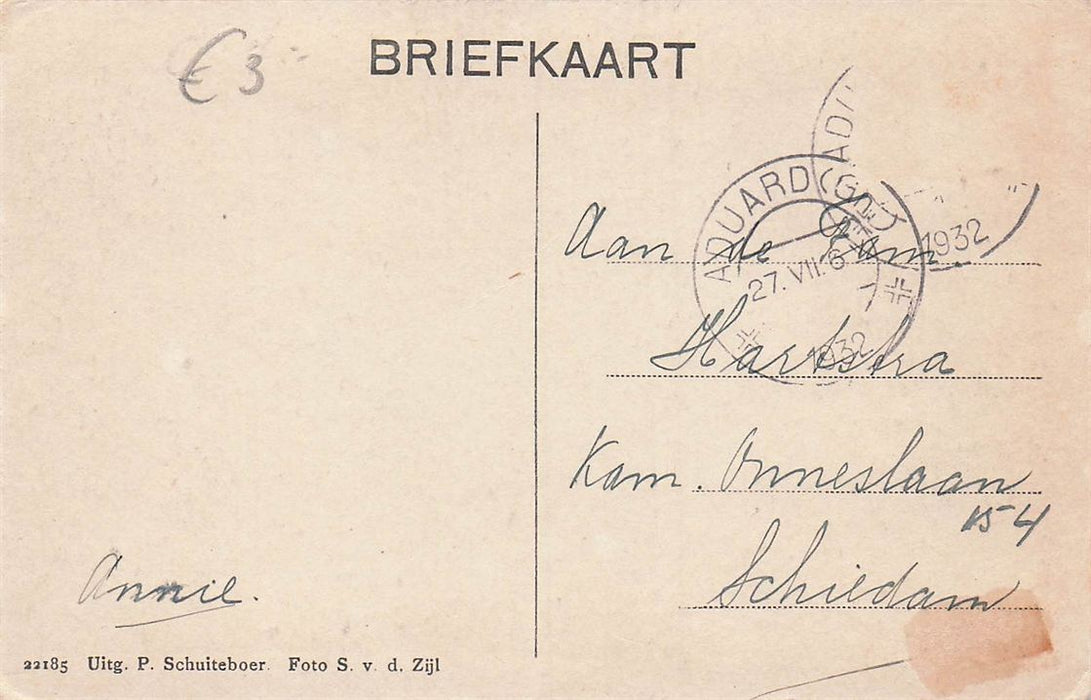 € 3
BRIEFKAART
ADUARD (Gn)
27.VII.6
1932
AD
1932
Aan de Fam
Harkstra
Kam. Onneslaan
154
Schiedam
Annie.
22185 Uitg. P. Schuiteboer. Foto S. v. d. Zijl